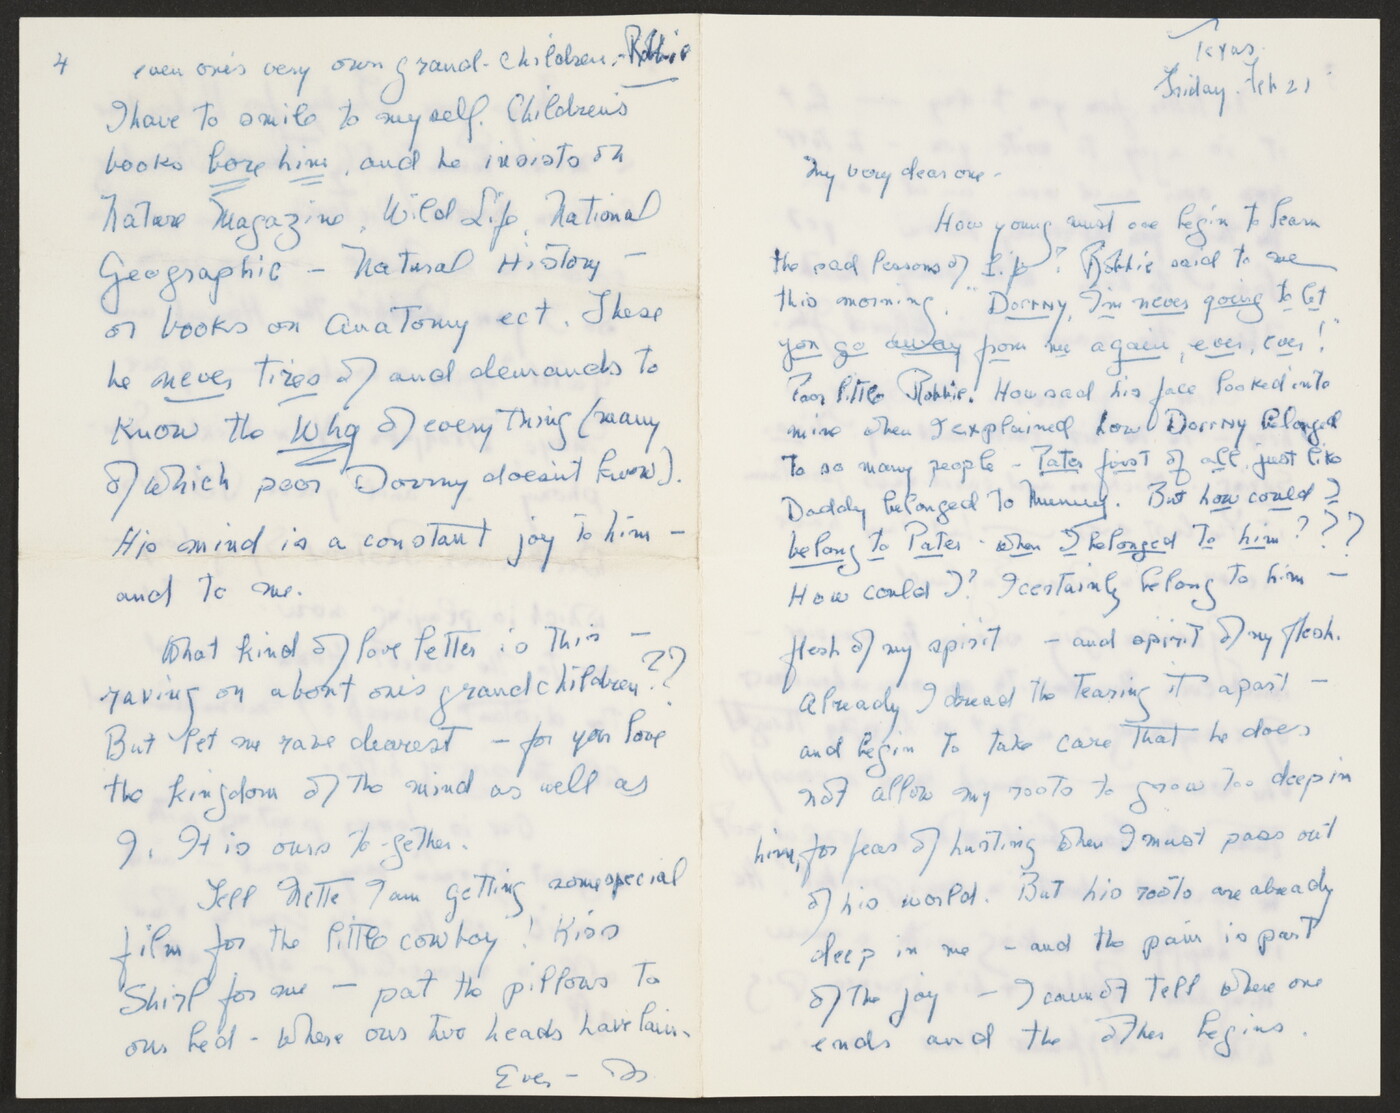 Texas.
Friday. Feb 21
My very dear one -
How young must one begin to learn
the sad lessons of Life? Robbie said to me
this morning. "Dormy, I'm never going to let
you go away from me again, ever, ever!"
Poor little Robbie. How sad his face looked into
mine when I explained how Dormy belonged
to so many people - Pater first of all, just like
Daddy belonged to Mummy. But how could I
belong to Pater - when I belonged to him???
How could I? I certainly belong to him -
flesh of my spirit - and spirit of my flesh.
Already I dread the tearing it apart -
and begin to take care that he does
not allow my roots to grow too deep in
him, for fear of hurting when I must pass out
of his world. But his roots are already
deep in me - and the pain is part
of the joy - I cannot tell where one
ends and the other begins.
4
even one's very own grand-children. - Robbie
I have to smile to myself. Children's
books bore him, and he insists on
Nature Magazine, Wild Life, National
Geographic - Natural History -
or books on anatomy ect. These
he never tires of and demands to
know the Why of everything (many
of which poor Dormy doesn't know).
His mind is a constant joy to him -
and to me.
What kind of love letter is this -
raving on about one's grandchildren??
But let me rave dearest - for you love
the kingdom of the mind as well as
I. It is ours to-gether.
Tell Mette I am getting some special
film for the little cowboy! Kiss
Shirl for me - pat the pillows to
our bed - where our two heads have lain.
Ever -